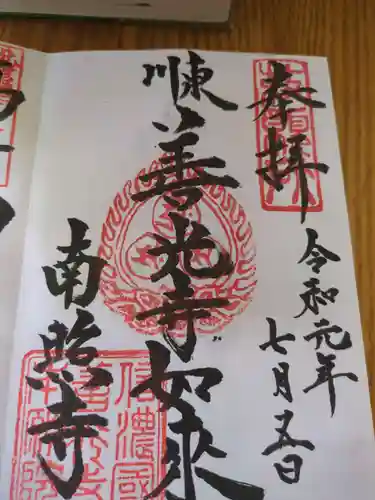 奉拝
令和元年
七月五日
東川
善光寺如来
南照寺
信濃國